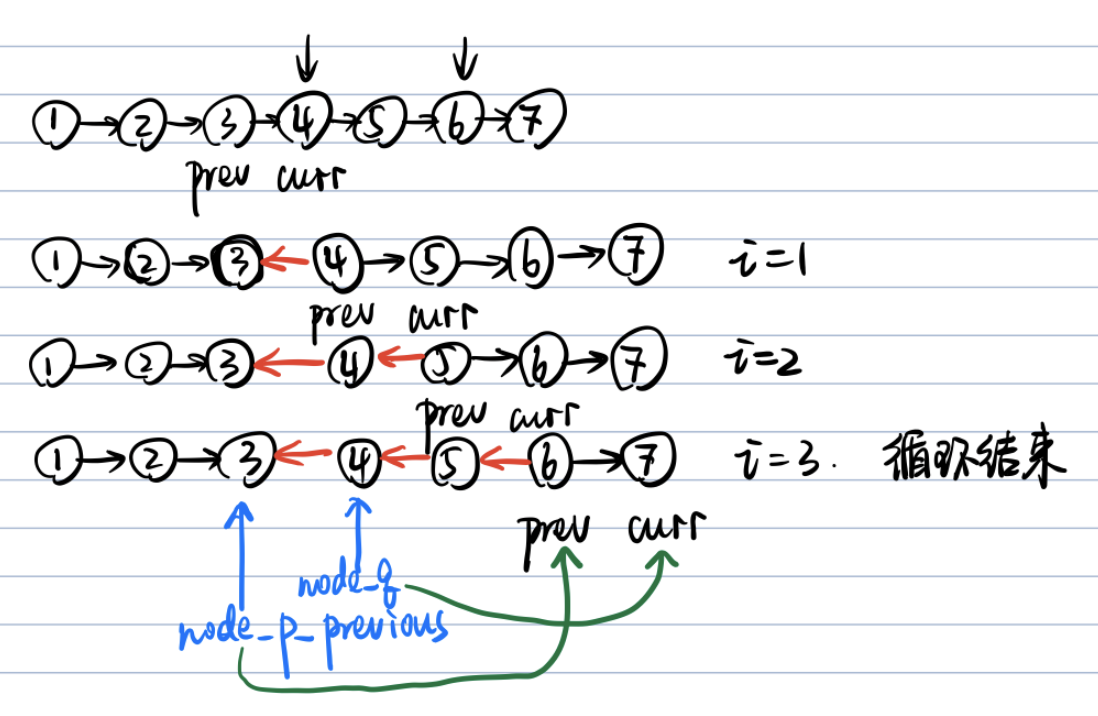 1 2 3 4 5 6 7
prev curr
1 2 3 4 5 6 7 i=1
prev curr
1 2 3 4 5 6 7 i=2
prev curr
1 2 3 4 5 6 7 i=3. 循环结束
prev curr
node_q
node_p_previous